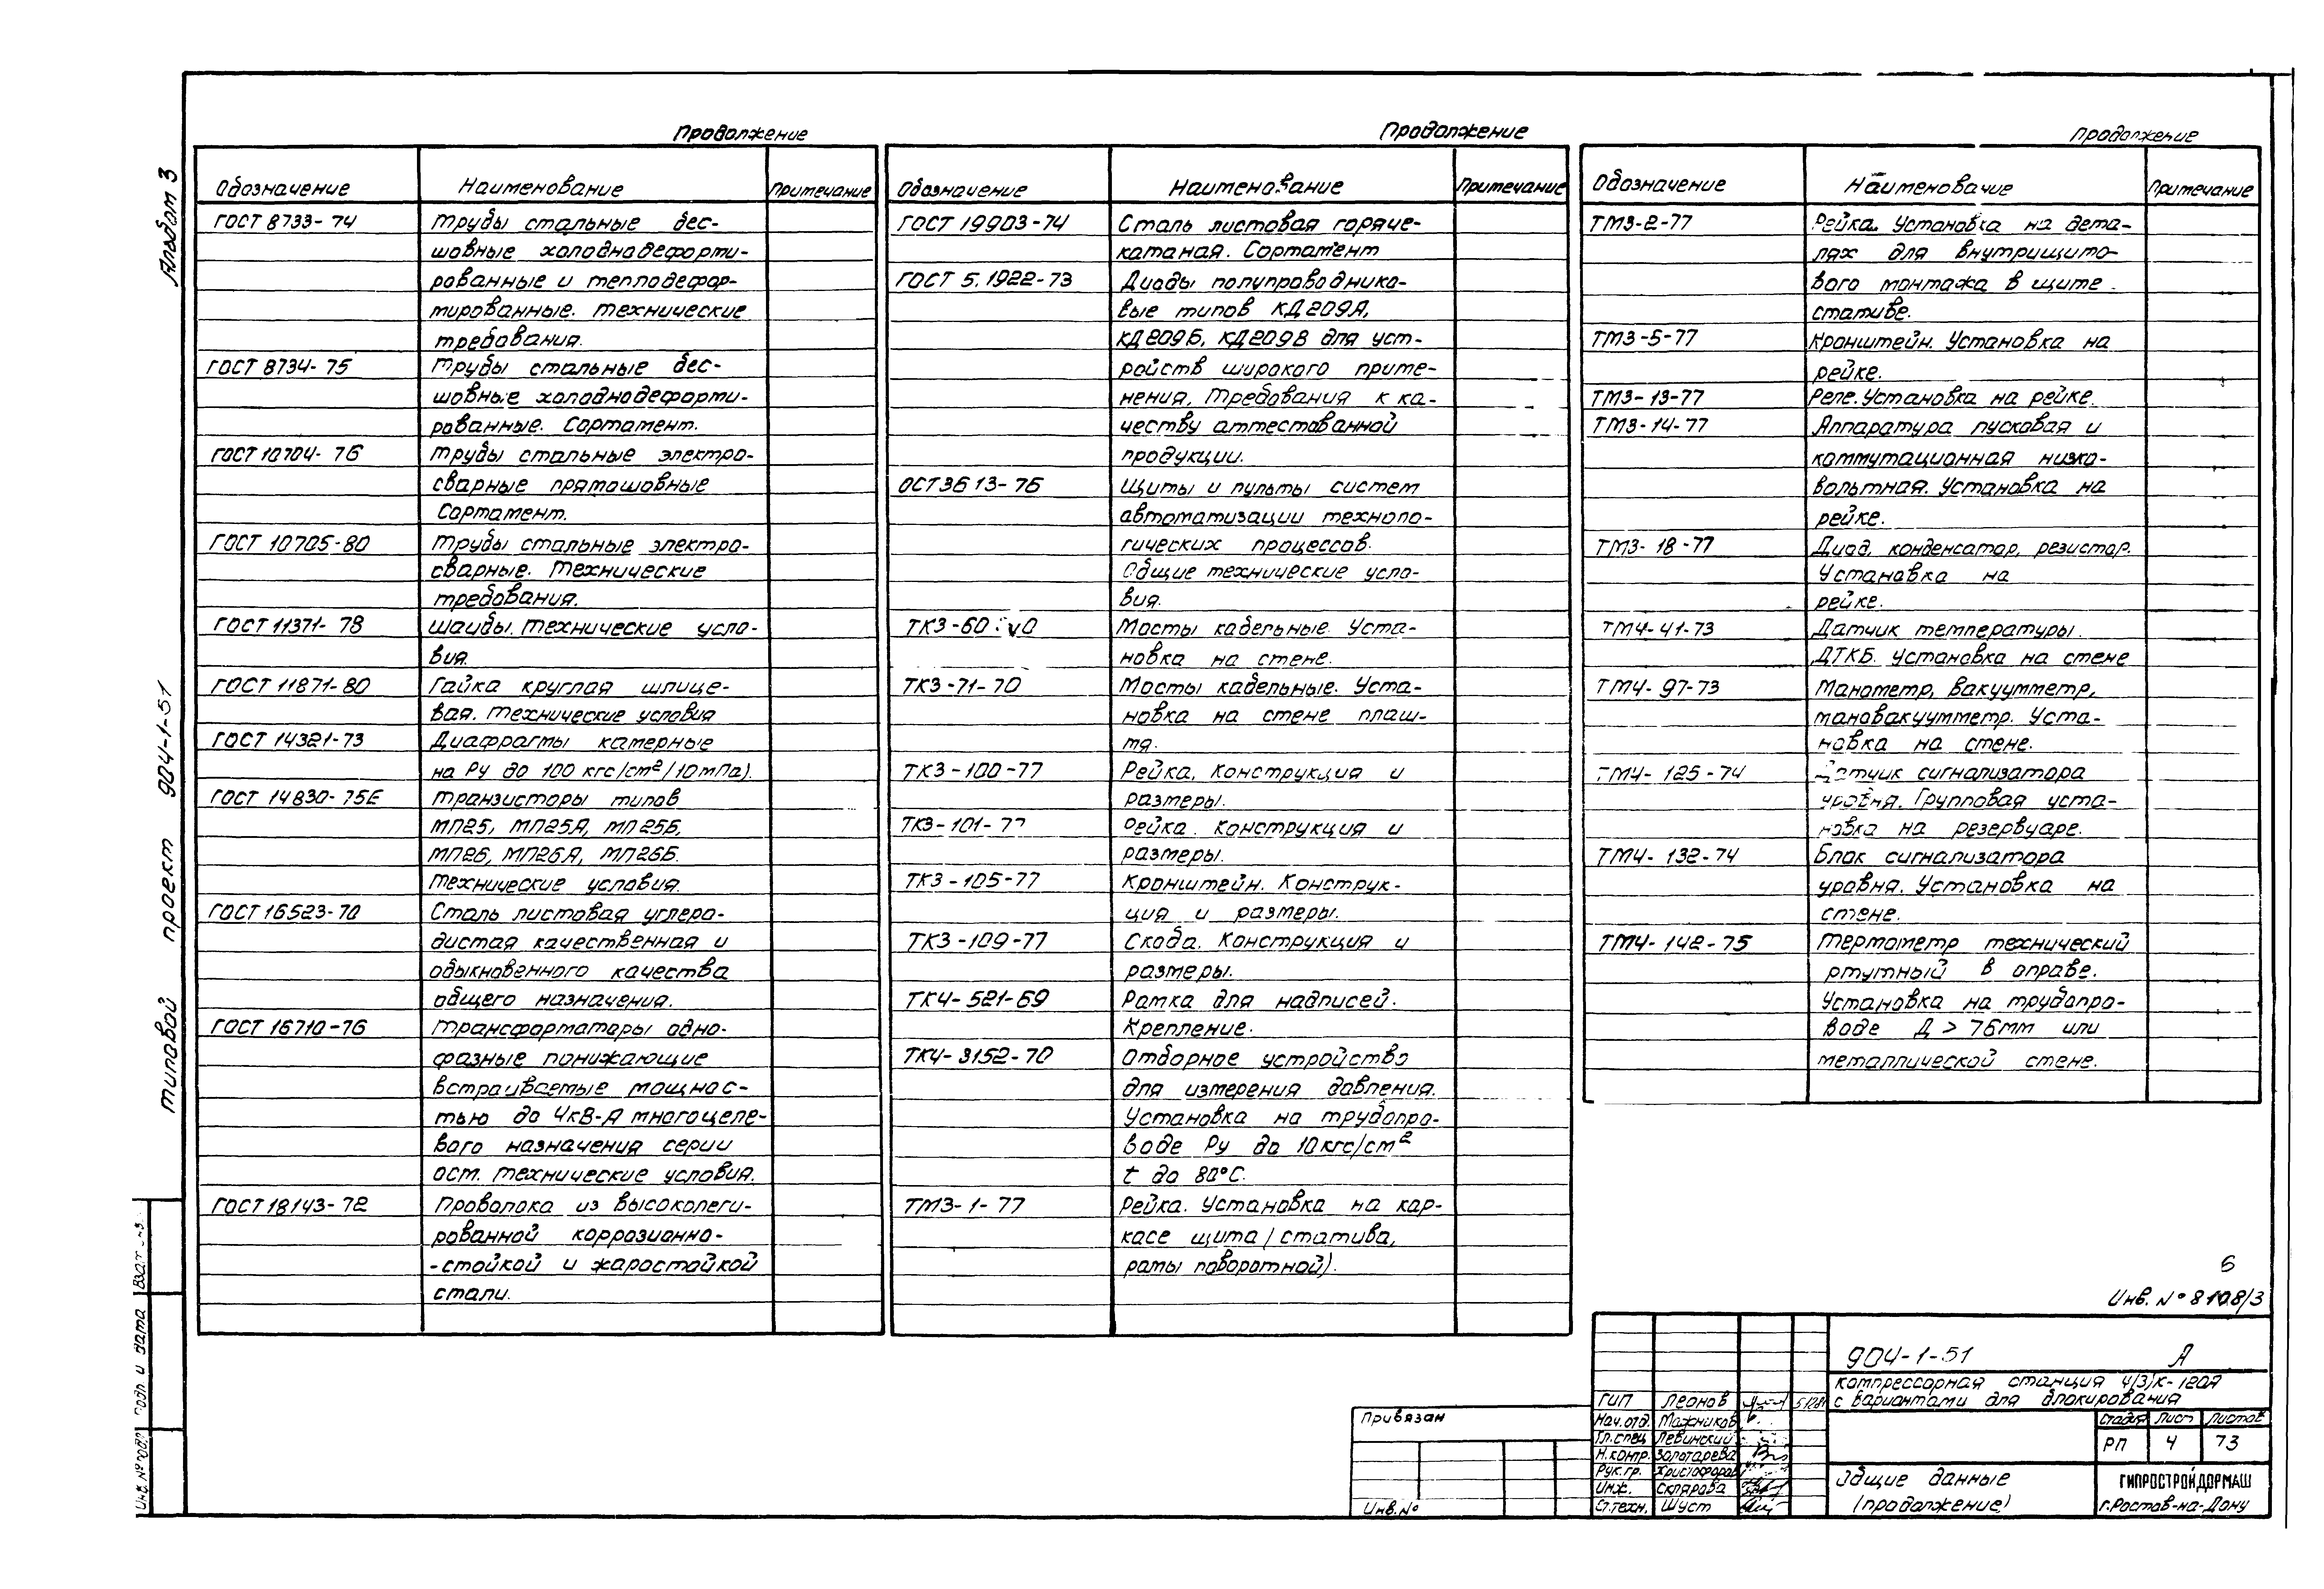 Альбом 3
типовой проект 904-1-51
Продолжение
Обозначение Наименование Примечание
ГОСТ 8733-74 Трубы стальные бес-
шовные холоднодеформи-
рованные и теплодефор-
мированные. Технические
требования.
ГОСТ 8734-75 Трубы стальные бес-
шовные холоднодеформи-
рованные. Сортамент.
ГОСТ 10704-76 Трубы стальные электро-
сварные прямошовные
Сортамент.
ГОСТ 10705-80 Трубы стальные электро-
сварные. Технические
требования.
ГОСТ 11371-78 Шайбы. Технические усло-
вия.
ГОСТ 11871-80 Гайка круглая шлице-
вая. Технические условия
ГОСТ 14321-73 Диафрагмы камерные
на Ру до 100 кгс/см²/10мПа).
ГОСТ 14830-75Е Транзисторы типов
МП25, МП25А, МП25Б,
МП26, МП26А, МП26Б.
Технические условия.
ГОСТ 16523-70 Сталь листовая углеро-
дистая качественная и
обыкновенного качества
общего назначения.
ГОСТ 16710-76 Трансформаторы одно-
фазные понижающие
встраиваемые мощнос-
тью до 4кВ-А многоцеле-
вого назначения серии
осм. Технические условия.
ГОСТ 18143-72 Проволока из высоколеги-
рованной коррозионно-
-стойкой и жаростойкой
стали.
Продолжение
Обозначение Наименование Примечание
ГОСТ 19903-74 Сталь листовая горяче-
катаная. Сортамент
ГОСТ 5.1922-73 Диоды полупроводнико-
вые типов КД209А,
КД209Б, КД209В для уст-
ройств широкого приме-
нения. Требования к ка-
честву аттестованной
продукции.
ОСТ36 13-76 Щиты и пульты систем
автоматизации техноло-
гических процессов.
Общие технические усло-
вия.
ТК3-60-70 Мосты кабельные. Уста-
новка на стене.
ТК3-71-70 Мосты кабельные. Уста-
новка на стене плаш-
мя.
ТК3-100-77 Рейка. Конструкция и
размеры.
ТК3-101-77 Рейка. Конструкция и
размеры.
ТК3-105-77 Кронштейн. Конструк-
ция и размеры.
ТК3-109-77 Скоба. Конструкция и
размеры.
ТК4-521-69 Рамка для надписей.
Крепление.
ТК4-3152-70 Отборное устройство
для измерения давления.
Установка на трубопро-
воде Ру до 10кгс/см²
t до 80°С.
ТМ3-1-77 Рейка. Установка на кар-
касе щита/статива,
рамы поворотной).
Продолжение
Обозначение Наименование Примечание
ТМ3-2-77 Рейка. Установка на дета-
лях для внутрищито-
вого монтажа в щите -
стативе.
ТМ3-5-77 Кронштейн. Установка на
рейке.
ТМ3-13-77 Реле. Установка на рейке.
ТМ3-14-77 Аппаратура пусковая и
коммутационная низко-
вольтная. Установка на
рейке.
ТМ3-18-77 Диод, конденсатор, резистор.
Установка на
рейке.
ТМ4-41-73 Датчик температуры.
ДТКБ. Установка на стене
ТМ4-97-73 Манометр, вакуумметр,
мановакуумметр. Уста-
новка на стене.
ТМ4-125-74 Датчик сигнализатора
уровня. Групповая уста-
новка на резервуаре.
ТМ4-132-74 Блок сигнализатора
уровня. Установка на
стене.
ТМ4-142-75 Термометр технический
ртутный в оправе.
Установка на трубопро-
воде Д > 76мм или
металлической стене.
6
Инв. № 8108/3
904-1-51 А
компрессорная станция 4/3/К-120А
с вариантами для блокирования
Стадия Лист Листов
РП 4 73
Общие данные
(продолжение)
ГИПРОСТРОЙДОРМАШ
г. Ростов-на-Дону
ГИП Леонов
Нач.отд. Мажников
Гл.спец Левинский
Н.контр. Золотарева
Рук.гр. Христофоров
Инж. Склярова
Ст.техн. Шуст
Привязан
Инв. №
Инв. № подл Подп и дата